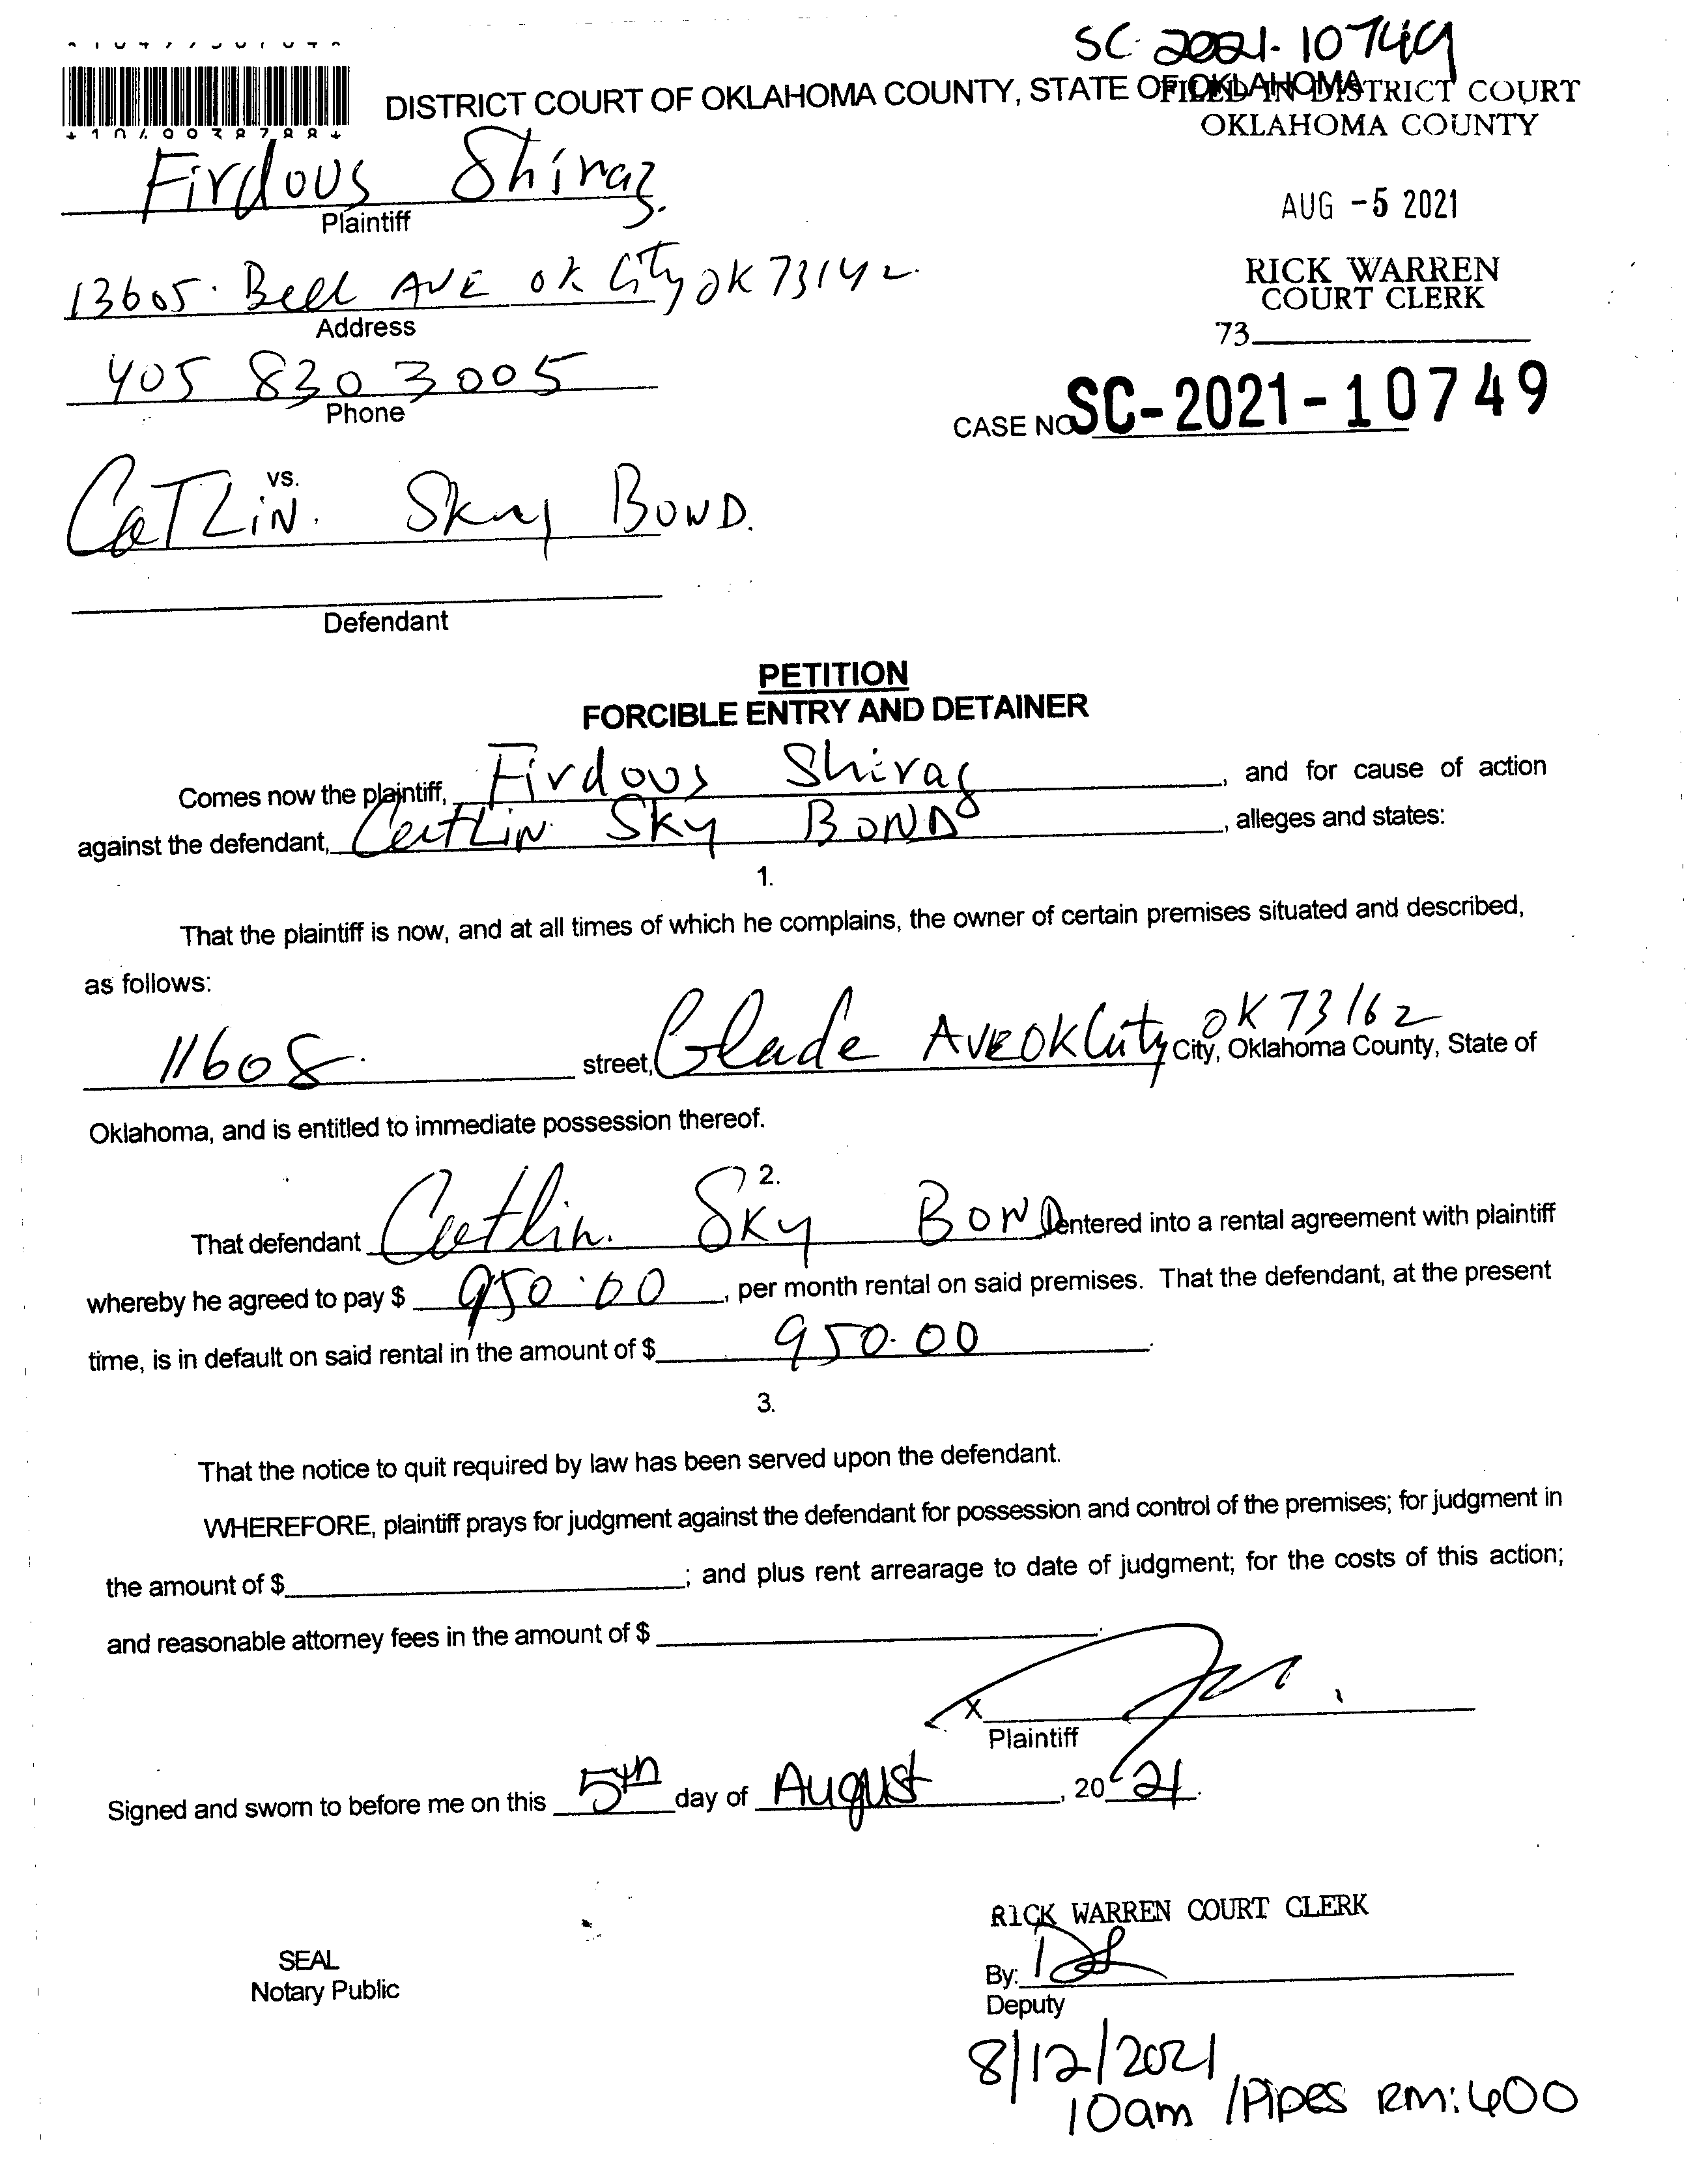 SC-2021-10749
DISTRICT COURT OF OKLAHOMA COUNTY, STATE OF OKLAHOMA
FILED IN DISTRICT COURT
OKLAHOMA COUNTY
Firdous Shiraz
Plaintiff
AUG -5 2021
13605. Bell AVE OK City OK 73142
Address
RICK WARREN
COURT CLERK
73
405 830 3005
Phone
CASE NO SC-2021-10749
vs.
CaTLiN. Sky BOND.
Defendant
PETITION
FORCIBLE ENTRY AND DETAINER
Comes now the plaintiff, Firdous Shiraz, and for cause of action
against the defendant, CaitLiN Sky BOND, alleges and states:
1.
That the plaintiff is now, and at all times of which he complains, the owner of certain premises situated and described,
as follows:
11608. street, Glade AVE OK City OK 73162 City, Oklahoma County, State of
Oklahoma, and is entitled to immediate possession thereof.
2.
That defendant Caitlin. Sky BOND entered into a rental agreement with plaintiff
whereby he agreed to pay $ 950.00, per month rental on said premises. That the defendant, at the present
time, is in default on said rental in the amount of $ 950.00.
3.
That the notice to quit required by law has been served upon the defendant.
WHEREFORE, plaintiff prays for judgment against the defendant for possession and control of the premises; for judgment in
the amount of $ ; and plus rent arrearage to date of judgment; for the costs of this action;
and reasonable attorney fees in the amount of $ .
X
Plaintiff
Signed and sworn to before me on this 5th day of August, 2021.
RICK WARREN COURT CLERK
SEAL
Notary Public
By:
Deputy
8/12/2021
10am /Pipes RM:400